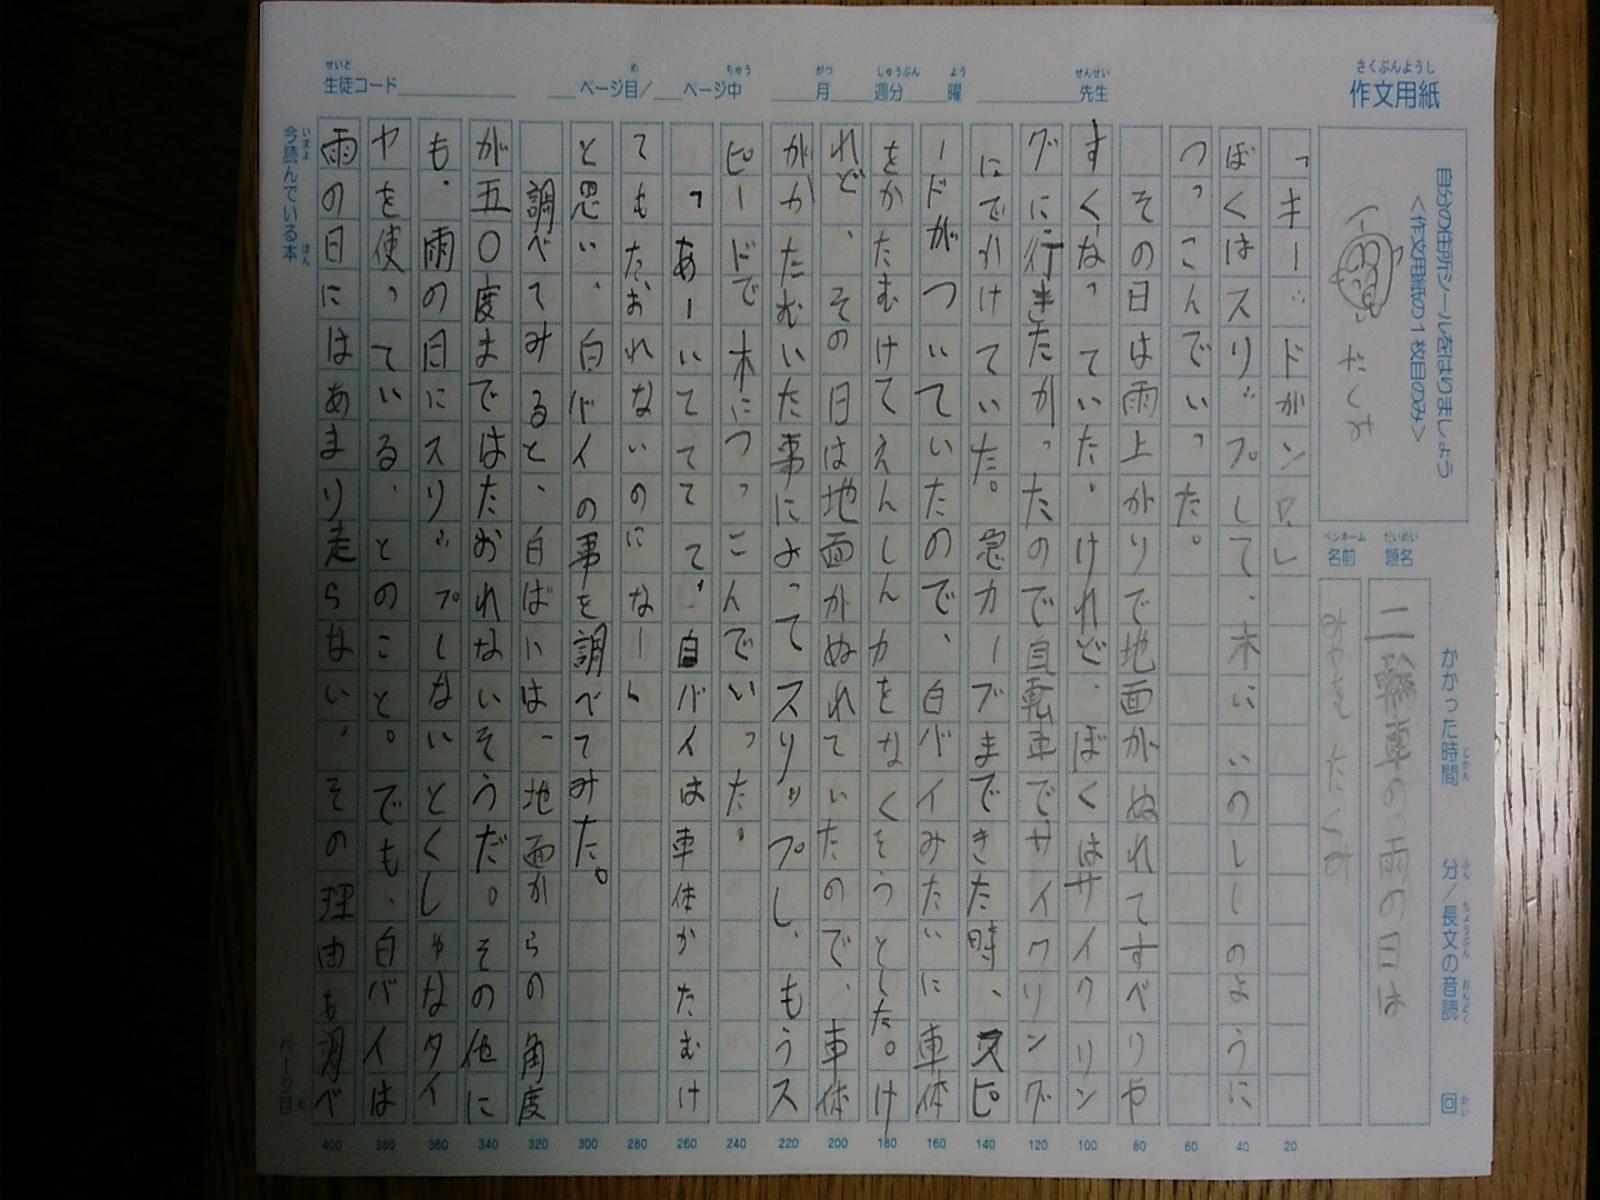 作文用紙
さくぶんようし
せんせい
先生
よう
曜
しゅうぶん
週分
がつ
月
ちゅう
ページ中
め
ページ目/
せいと
生徒コード
自分の住所シールをはりましょう
<作文用紙の1枚目のみ>
たくみ
だいめい
題名
二輪車の雨の日は
ペンネーム
名前
たくみ
かかった時間
じかん
分/長文の音読
ふん
ちょうぶん
おんどく
回
かい
「キー…ドガンロ」
ぼくはスリップして、木にいのししのように
つっこんでいった。
その日は雨上がりで地面がぬれてすべりや
すくなっていた。けれど、ぼくはサイクリン
グに行きたかったので自転車でサイクリング
にでかけていた。急カーブまできた時、スピ
ードがついていたので、白バイみたいに車体
をかたむけてえんしんカをなくそうとした。け
れど、その日は地面がぬれていたので、車体
がかたむいた事によってスリップし、もうス
ピードで木につっこんでいった。
「あーいてててて、白バイは車体かたむけ
てもたおれないのになー」
と思い、白バイの事を調べてみた。
調べてみると、白ばいは、地面からの角度
が五〇度まではたおれないそうだ。その他に
も、雨の日にスリップしないとくしゅなタイ
ヤを使っている、とのこと。でも、白バイは
雨の日にはあまり走らない、その理由も調べ
20
40
60
80
100
120
140
160
180
200
220
240
260
280
300
320
340
360
380
400
今読んでいる本
いまよ
ほん
ページ目
め